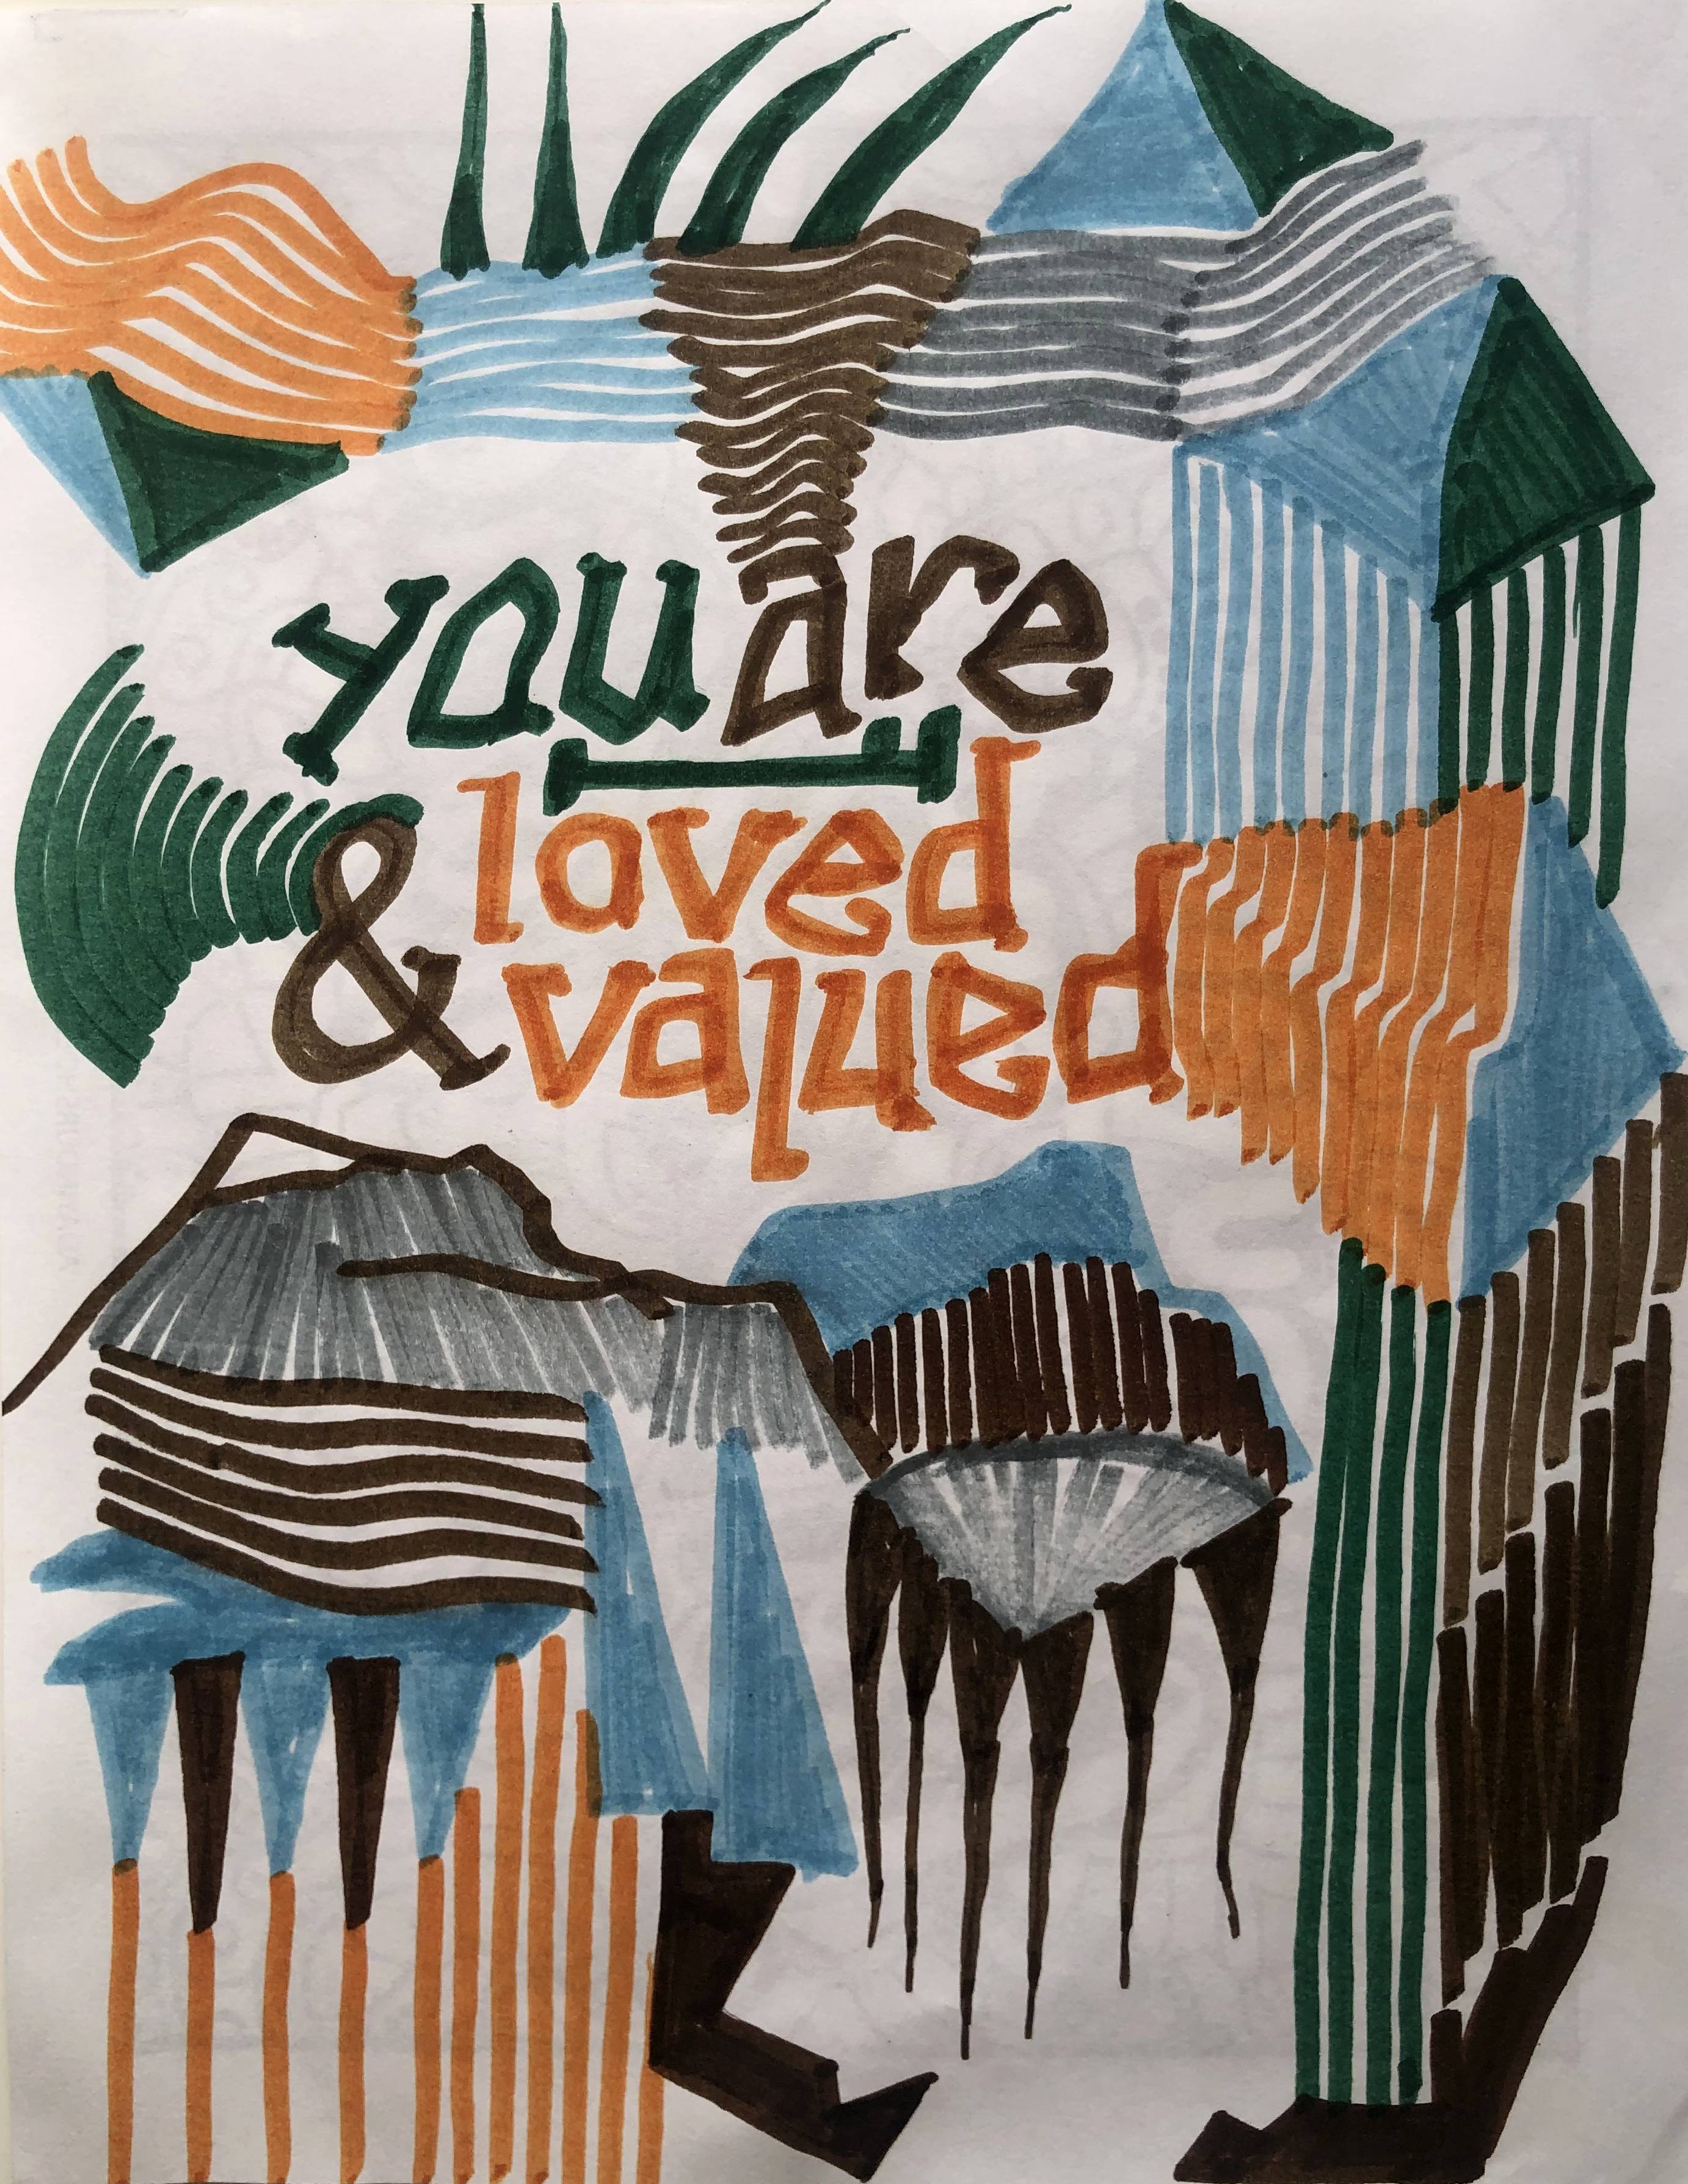 you are
loved
& valued